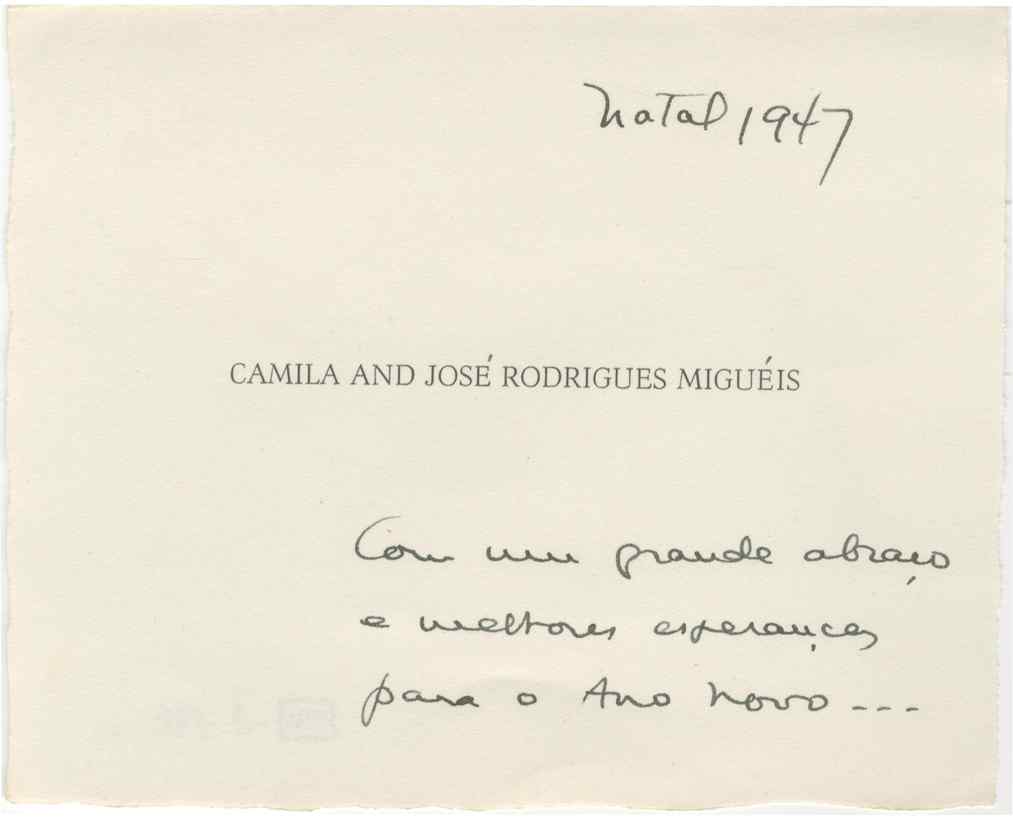 Natal 1947
CAMILA AND JOSÉ RODRIGUES MIGUÉIS
Com um grande abraço
e melhores esperanças
para o Ano Novo ---